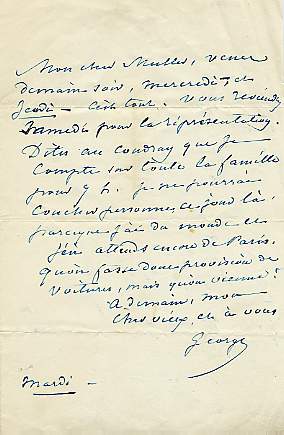 Mon cher Muller, venez
demain soir, mercredi, et
Jeudi — c'est tout. Vous revenez
Samedi pour la représentation.
Dites au Coudray que je
compte sur toute la famille
pour 7 h. je ne pourrai
coucher personne ce jour là,
parceque j'ai du monde et
j'en attends encore de Paris.
qu'on fasse donc provision de
voitures, mais qu'on vienne!
A demain, mon
cher vieux, et à vous
George
Mardi —